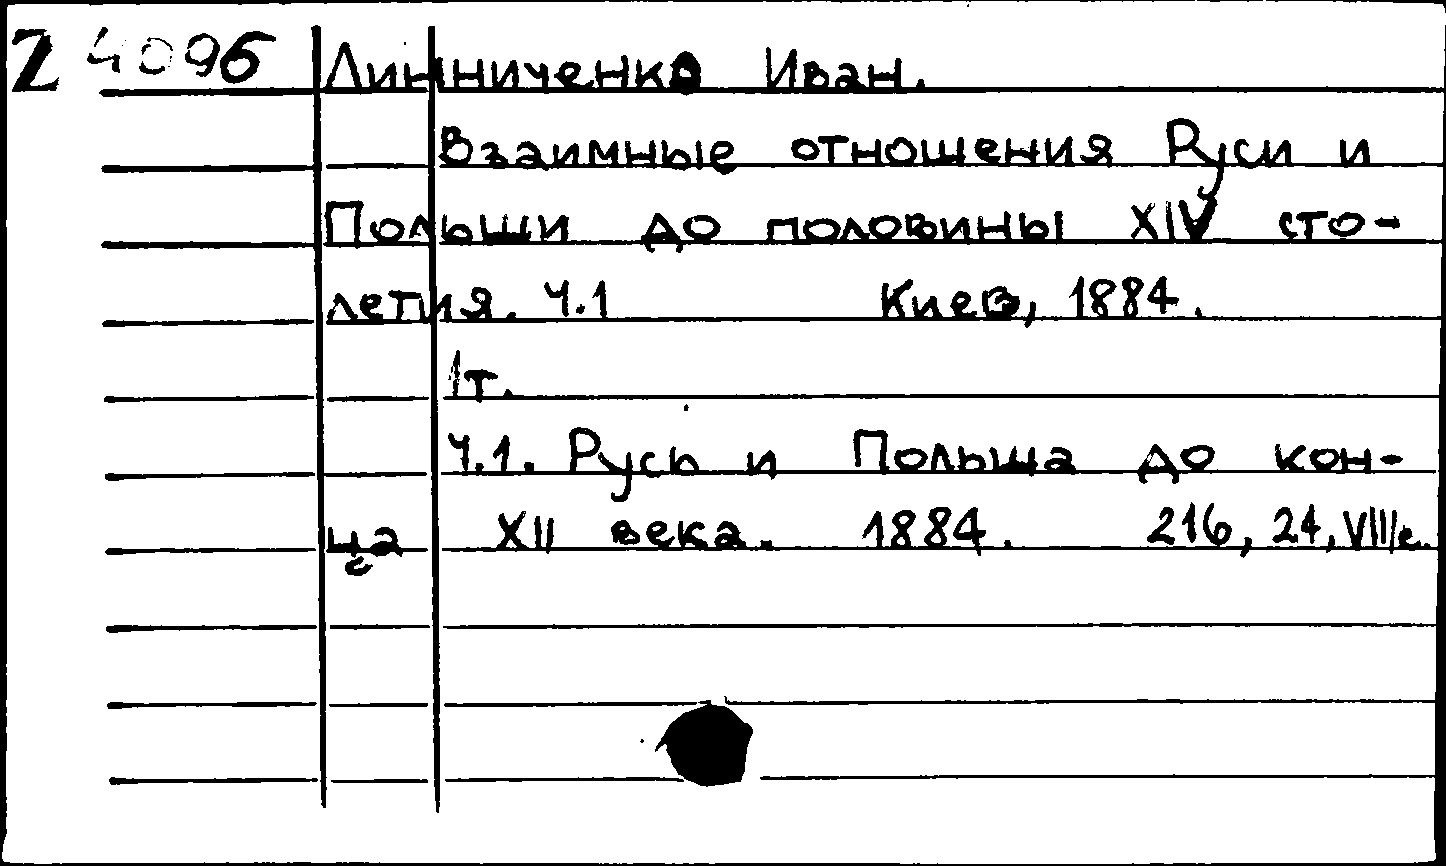 Z 4096 Линниченко Иван.
Взаимные отношения Руси и
Польши до половины XIV сто-
летия. Ч.1 Киев, 1884.
1т.
Ч.1. Русь и Польша до кон-
ца XII века. 1884. 216, 24, VIIIс.